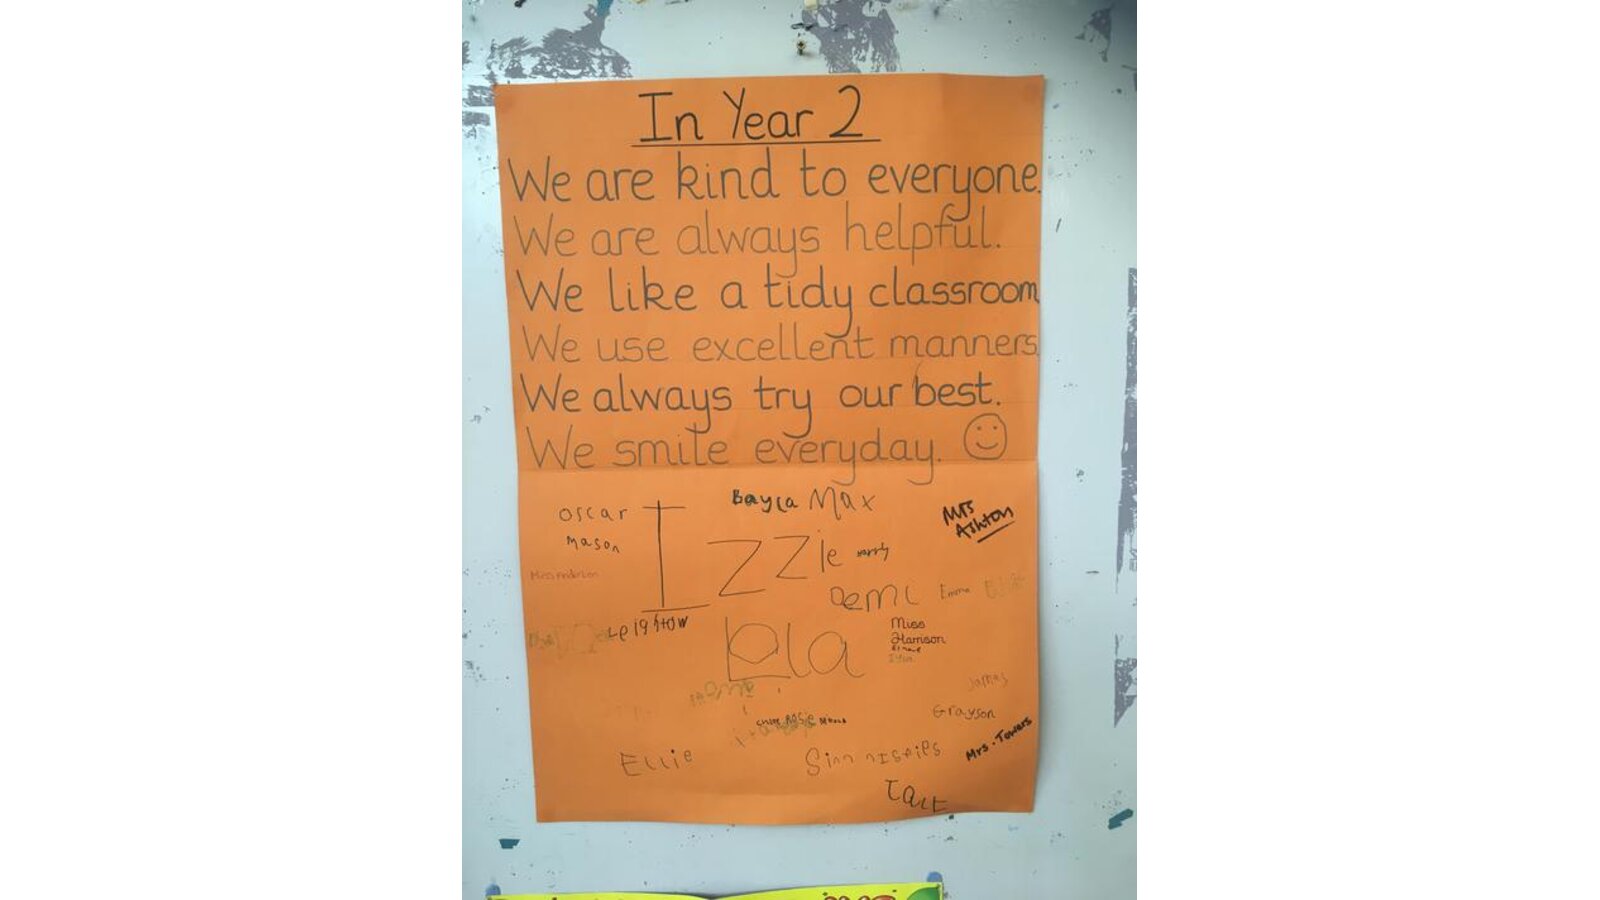 In Year 2
We are kind to everyone.
We are always helpful.
We like a tidy classroom
We use excellent manners.
We always try our best.
We smile everyday.
Bayla Max
Oscar
Mrs
Ashton
Mason
Izzie
Harry
Miss Anderson
Demi
Emma
Leighton
Miss
Harrison
Lola
James
Grayson
Rosie
Mrs. Towers
Ellie